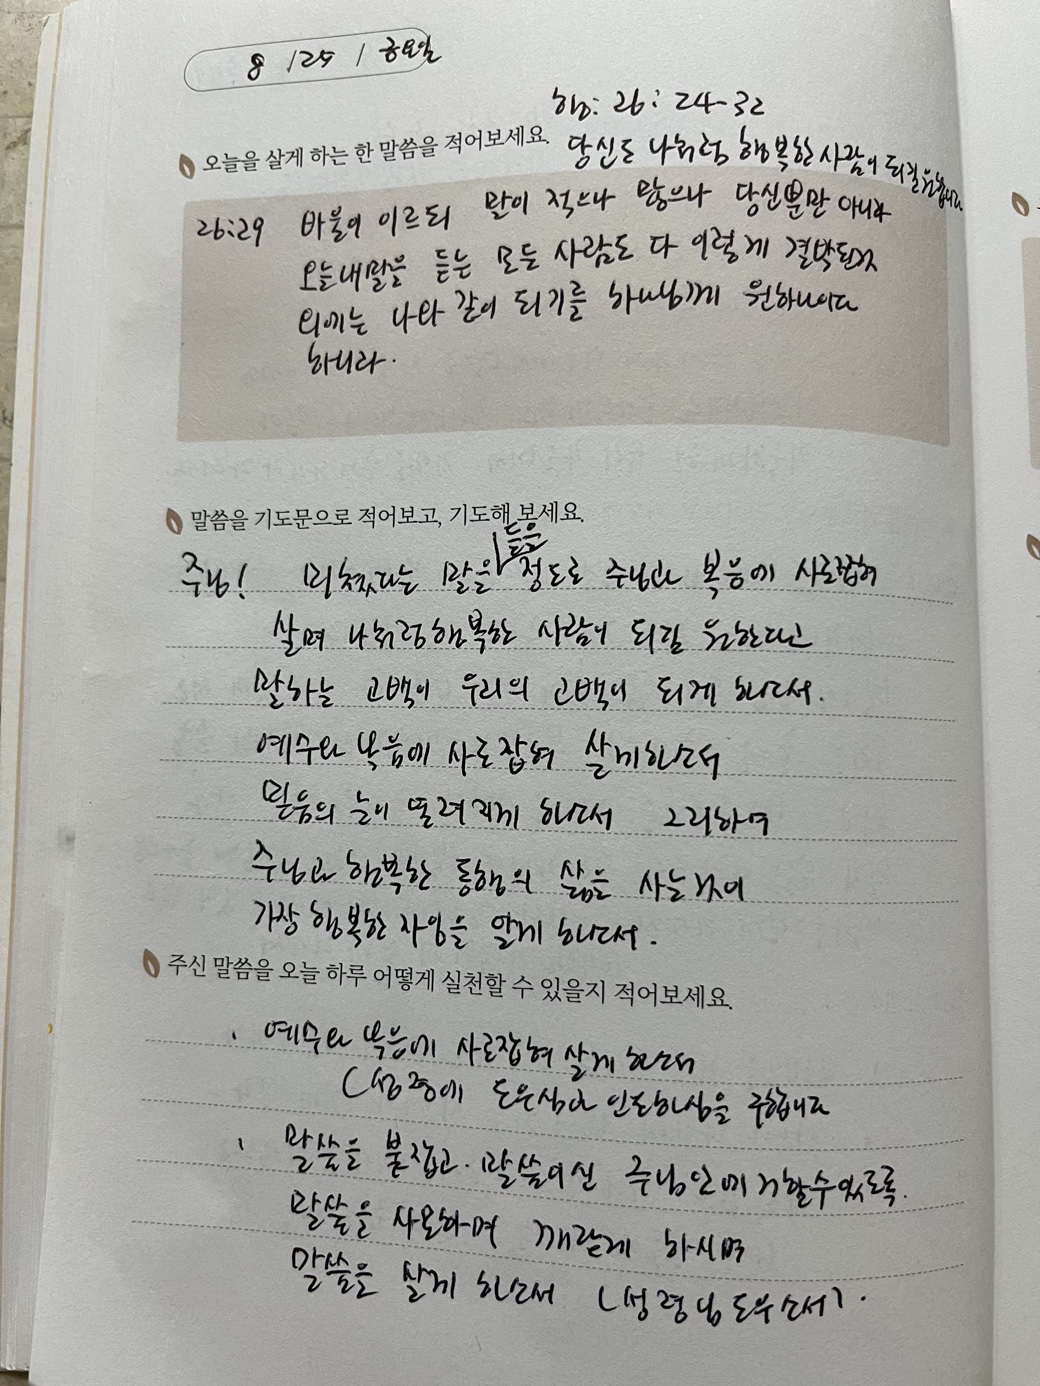 8 / 25 / 금요일
행: 26: 24-32
오늘을 살게 하는 한 말씀을 적어보세요.
당신도 나처럼 행복한 사람이 되길 원합니다
26:29 바울이 이르되 말이 적으나 많으나 당신뿐만 아니라
오늘 내 말을 듣는 모든 사람도 다 이렇게 결박된것
외에는 나와 같이 되기를 하나님께 원하나이다
하니라.
말씀을 기도문으로 적어보고, 기도해 보세요.
주님! 미쳤다는 말을 들을 정도로 주님과 복음에 사로잡혀
살며 나처럼 행복한 사람이 되길 원한다고
말하는 고백이 우리의 고백이 되게 하소서.
예수와 복음에 사로잡혀 살게하소서
믿음의 눈이 열려지게 하소서 그리하여
주님과 행복한 동행의 삶을 사는것이
가장 행복한 자임을 알게 하소서.
주신 말씀을 오늘 하루 어떻게 실천할 수 있을지 적어보세요.
· 예수와 복음에 사로잡혀 살게 하소서
(성령에 도우심과 인도하심을 구합니다
· 말씀을 붙잡고. 말씀이신 주님안에 거할수있도록.
말씀을 사모하며 깨닫게 하시며
말씀을 살게 하소서 (성령님 도우소서).